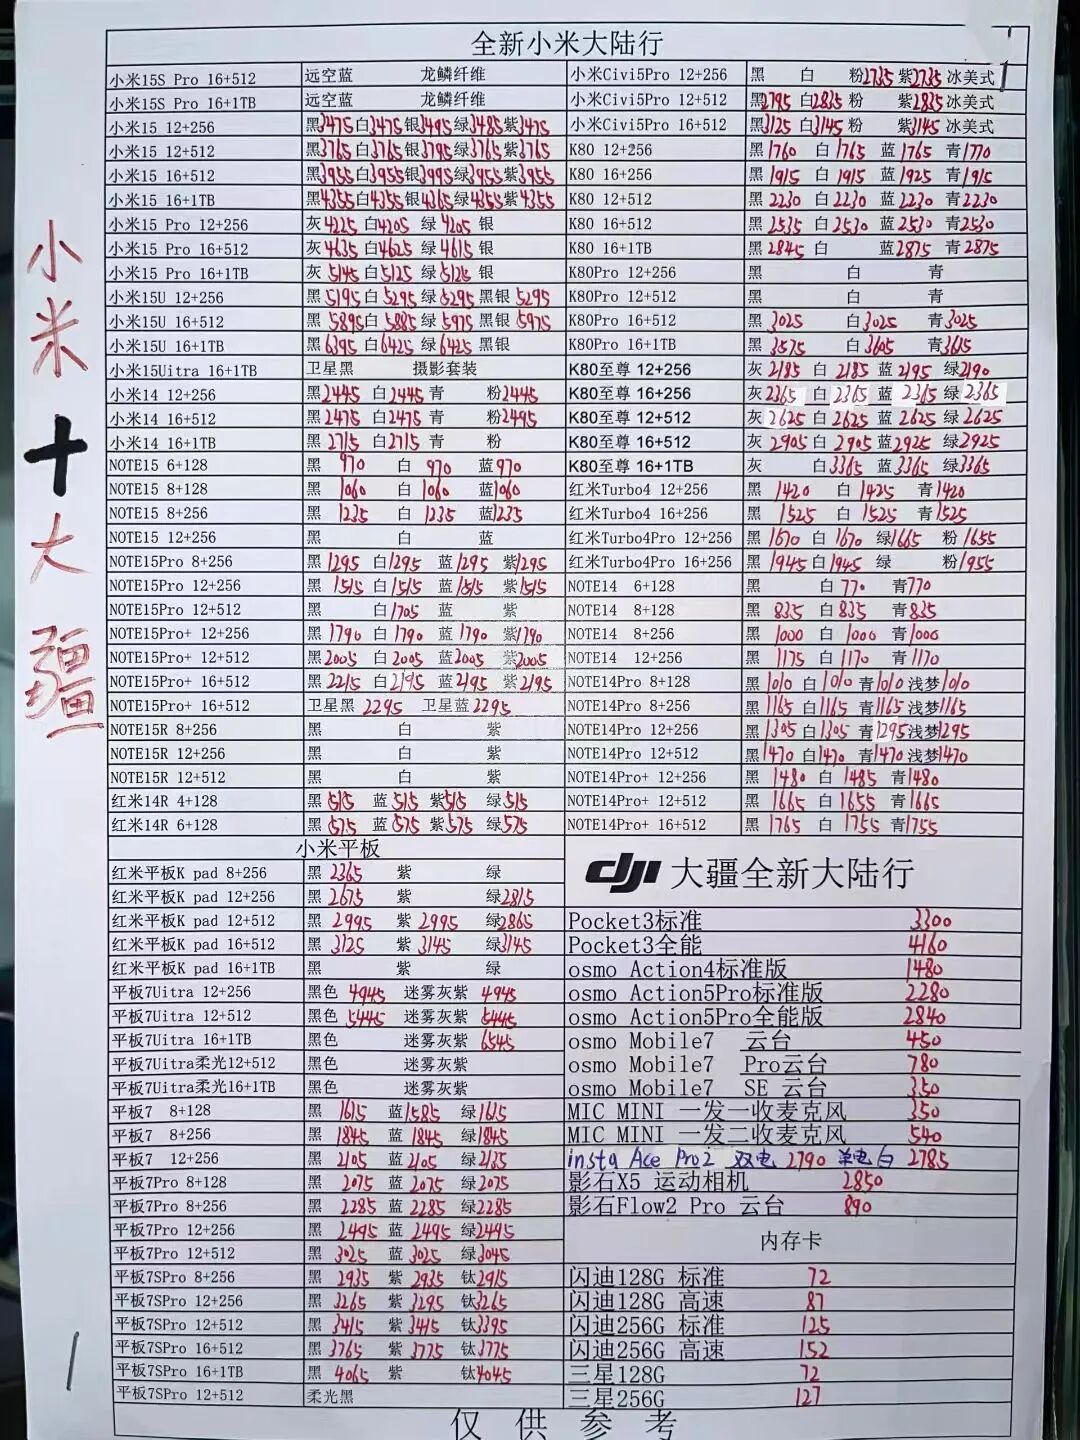 全新小米大陆行
小米15S Pro 16+512 远空蓝 龙鳞纤维
小米15S Pro 16+1TB 远空蓝 龙鳞纤维
小米15 12+256 黑3475 白3475 银3495 绿3485 紫3475
小米15 12+512 黑3765 白3765 银3795 绿3765 紫3765
小米15 16+512 黑3955 白3955 银3995 绿3955 紫3955
小米15 16+1TB 黑4355 白4355 银4365 绿4355 紫4355
小米15 Pro 12+256 灰4225 白4205 绿4205 银
小米15 Pro 16+512 灰4635 白4625 绿4615 银
小米15 Pro 16+1TB 灰5145 白5125 绿5125 银
小米15U 12+256 黑5195 白5295 绿5295 黑银5295
小米15U 16+512 黑5895 白5885 绿5975 黑银5975
小米15U 16+1TB 黑6395 白6425 绿6425 黑银
小米15Uitra 16+1TB 卫星黑 摄影套装
小米14 12+256 黑2445 白2445 青 粉2445
小米14 16+512 黑2475 白2475 青 粉2495
小米14 16+1TB 黑2715 白2715 青 粉
NOTE15 6+128 黑970 白970 蓝970
NOTE15 8+128 黑1060 白1060 蓝1060
NOTE15 8+256 黑1235 白1235 蓝1235
NOTE15 12+256 黑 白 蓝
NOTE15Pro 8+256 黑1295 白1295 蓝1295 紫1295
NOTE15Pro 12+256 黑1515 白1515 蓝1515 紫1515
NOTE15Pro 12+512 黑 白1705 蓝 紫
NOTE15Pro+ 12+256 黑1790 白1790 蓝1790 紫1790
NOTE15Pro+ 12+512 黑2005 白2005 蓝2005 紫2005
NOTE15Pro+ 16+512 黑2215 白2195 蓝2195 紫2195
NOTE15Pro+ 16+512 卫星黑2295 卫星蓝2295
NOTE15R 8+256 黑 白 紫
NOTE15R 12+256 黑 白 紫
NOTE15R 12+512 黑 白 紫
红米14R 4+128 黑515 蓝515 紫515 绿515
红米14R 6+128 黑575 蓝575 紫575 绿575
小米平板
红米平板K pad 8+256 黑2365 紫 绿
红米平板K pad 12+256 黑2675 绿2815
红米平板K pad 12+512 黑2995 紫2995 绿2865
红米平板K pad 16+512 黑3125 紫3145 绿3145
红米平板K pad 16+1TB 黑 紫 绿
平板7Uitra 12+256 黑色4945 迷雾灰紫4945
平板7Uitra 12+512 黑色5445 迷雾灰紫5445
平板7Uitra 16+1TB 黑色 迷雾灰紫6545
平板7Uitra柔光12+512 黑色 迷雾灰紫
平板7Uitra柔光16+1TB 黑色 迷雾灰紫
平板7 8+128 黑1615 蓝1585 绿1615
平板7 8+256 黑1845 蓝1845 绿1845
平板7 12+256 黑2105 蓝2105 绿2135
平板7Pro 8+128 黑2075 蓝2075 绿2075
平板7Pro 8+256 黑2285 蓝2285 绿2285
平板7Pro 12+256 黑2495 蓝2495 绿2495
平板7Pro 12+512 黑3025 蓝3025 绿3045
平板7SPro 8+256 黑2935 紫2935 钛2915
平板7SPro 12+256 黑3265 紫3295 钛3265
平板7SPro 12+512 黑3415 紫3415 钛3395
平板7SPro 16+512 黑3765 紫3775 钛3775
平板7SPro 16+1TB 黑4065 紫 钛4045
平板7SPro 12+512 柔光黑
小米Civi5Pro 12+256 黑 白 粉2735 紫2735 冰美式
小米Civi5Pro 12+512 黑2795 白2835 粉 紫2835 冰美式
小米Civi5Pro 16+512 黑3125 白3145 粉 紫3145 冰美式
K80 12+256 黑1760 白1765 蓝1765 青1770
K80 16+256 黑1915 白1915 蓝1925 青1915
K80 12+512 黑2230 白2230 蓝2230 青2230
K80 16+512 黑2535 白2530 蓝2530 青2530
K80 16+1TB 黑2845 白 蓝2875 青2875
K80Pro 12+256 黑 白 青
K80Pro 12+512 黑 白 青
K80Pro 16+512 黑3025 白3025 青3025
K80Pro 16+1TB 黑3575 白3605 青3615
K80至尊 12+256 灰2185 白2185 蓝2195 绿2190
K80至尊 16+256 灰2365 白2365 蓝2365 绿2365
K80至尊 12+512 灰2625 白2625 蓝2625 绿2625
K80至尊 16+512 灰2905 白2905 蓝2925 绿2925
K80至尊 16+1TB 灰 白3365 蓝3365 绿3365
红米Turbo4 12+256 黑1420 白1425 青1420
红米Turbo4 16+256 黑1525 白1525 青1525
红米Turbo4Pro 12+256 黑1670 白1670 绿1665 粉1655
红米Turbo4Pro 16+256 黑1945 白1945 绿 粉1955
NOTE14 6+128 黑 白770 青770
NOTE14 8+128 黑835 白835 青835
NOTE14 8+256 黑1000 白1000 青1000
NOTE14 12+256 黑1175 白1170 青1170
NOTE14Pro 8+128 黑1010 白1010 青1010 浅梦1010
NOTE14Pro 8+256 黑1165 白1165 青1165 浅梦1165
NOTE14Pro 12+256 黑1305 白1305 青1295 浅梦1295
NOTE14Pro 12+512 黑1470 白1470 青1470 浅梦1470
NOTE14Pro+ 12+256 黑1480 白1485 青1480
NOTE14Pro+ 12+512 黑1665 白1655 青1665
NOTE14Pro+ 16+512 黑1765 白1755 青1755
dji 大疆全新大陆行
Pocket3标准 3300
Pocket3全能 4160
osmo Action4标准版 1480
osmo Action5Pro标准版 2280
osmo Action5Pro全能版 2840
osmo Mobile7 云台 450
osmo Mobile7 Pro云台 780
osmo Mobile7 SE 云台 350
MIC MINI 一发一收麦克风 350
MIC MINI 一发二收麦克风 540
insta Ace Pro2 双电 2790 单电白 2785
影石X5 运动相机 2850
影石Flow2 Pro 云台 890
内存卡
闪迪128G 标准 72
闪迪128G 高速 87
闪迪256G 标准 125
闪迪256G 高速 152
三星128G 72
三星256G 127
仅供参考
小米十大疆